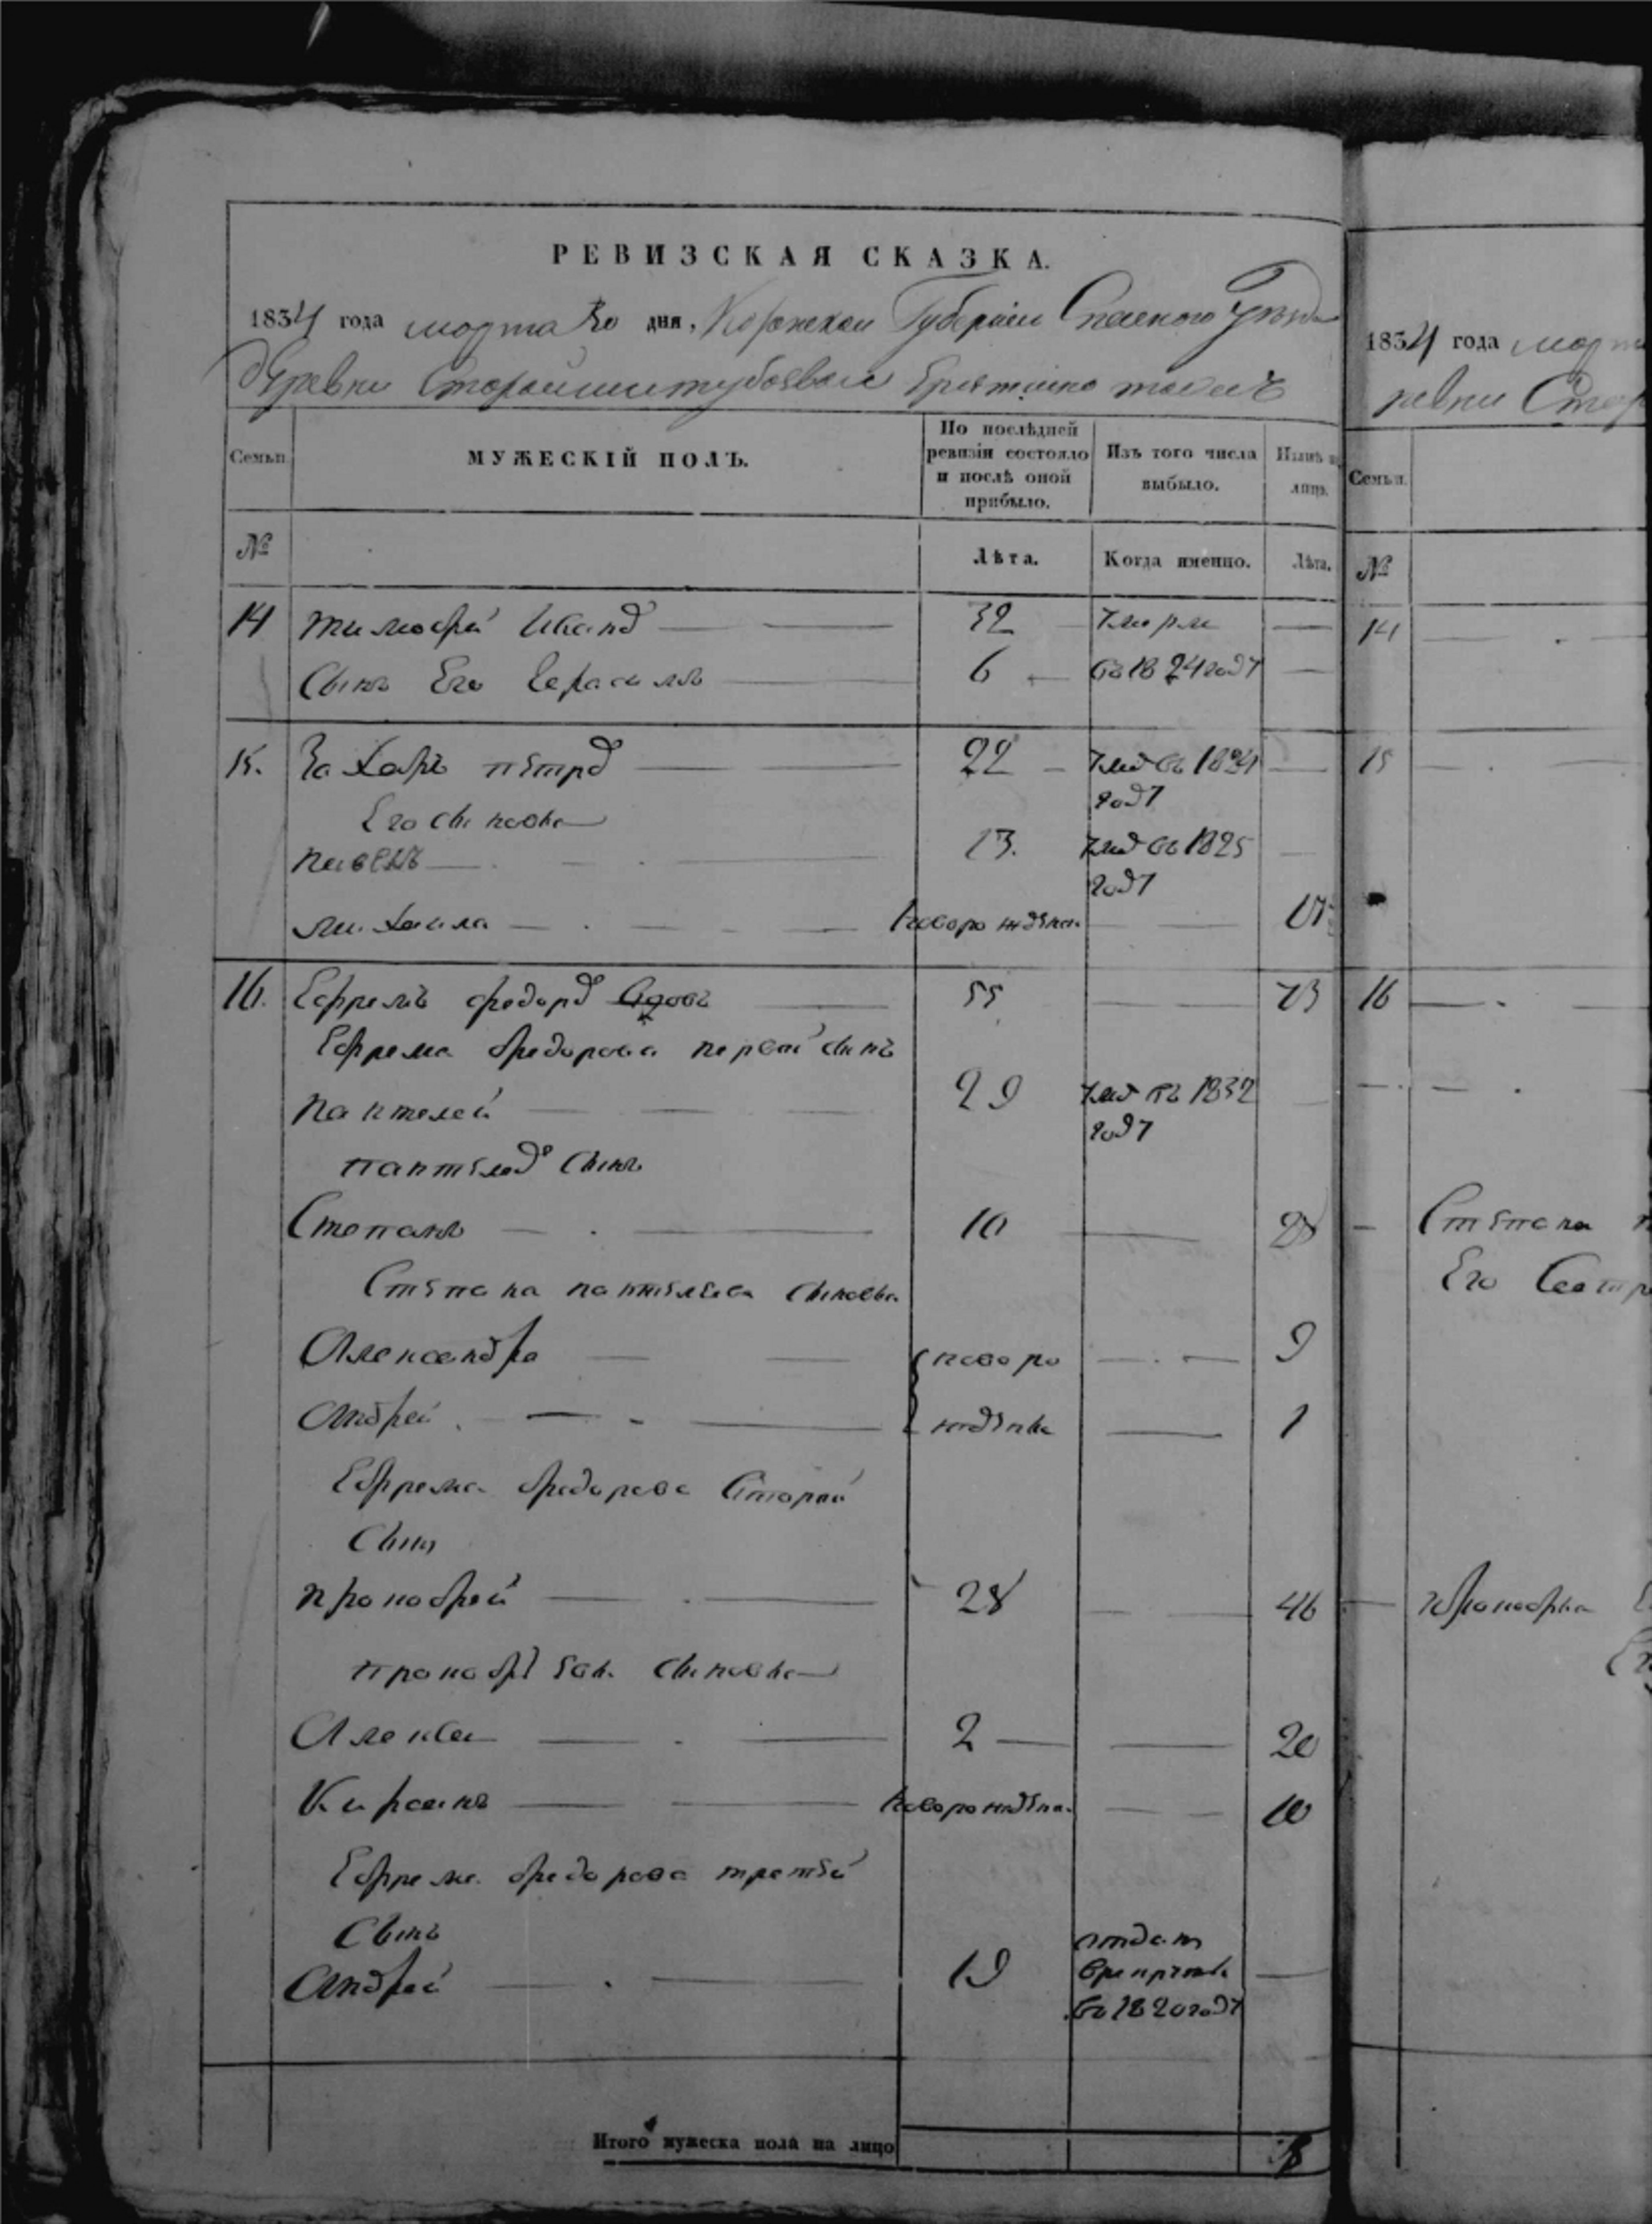 РЕВИЗСКАЯ СКАЗКА.
1834 года марта 30 дня, Казанской Губернии Спаскаго Уезда
деревни Старой
Семьи.
МУЖЕСКІЙ ПОЛЪ.
По послѣдней ревизіи состояло и послѣ оной прибыло.
Изъ того числа выбыло.
Нынѣ на лицо.
№
Лѣта.
Когда именно.
Лѣта.
14 Тимофей Иванов 32 Умерли —
Сынъ Его Герасимъ 6 въ 1824 году —
15. Захаръ Петров 22 Ум въ 1831 году —
Его сыновья
Павелъ 13. Ум въ 1825 году —
Михаила новорожденои 17
16. Ефремъ Федоров 55 — 73
Ефрема Федорова первой сынъ
Пантелей 29 Ум въ 1832 году —
Пантелеев сынъ
Степанъ 10 — 28
Степана Пантелеева сыновья
Александра новоро — 9
Андрей жденые — 1
Ефрема Федорова второй
сынъ
Прокофей 28 — 46
Прокофьевы сыновья
Алексей 2 — 20
Кирсанъ новорожденои — 10
Ефрема Федорова третей
Сынъ
Андрей 19 отдат в рекруты въ 1820 году —
Итого мужеска пола на лицо 8
1834 года мар
ревни Стар
Семьи.
№
14
15
16
Степана
Его Сестр
Прокофья